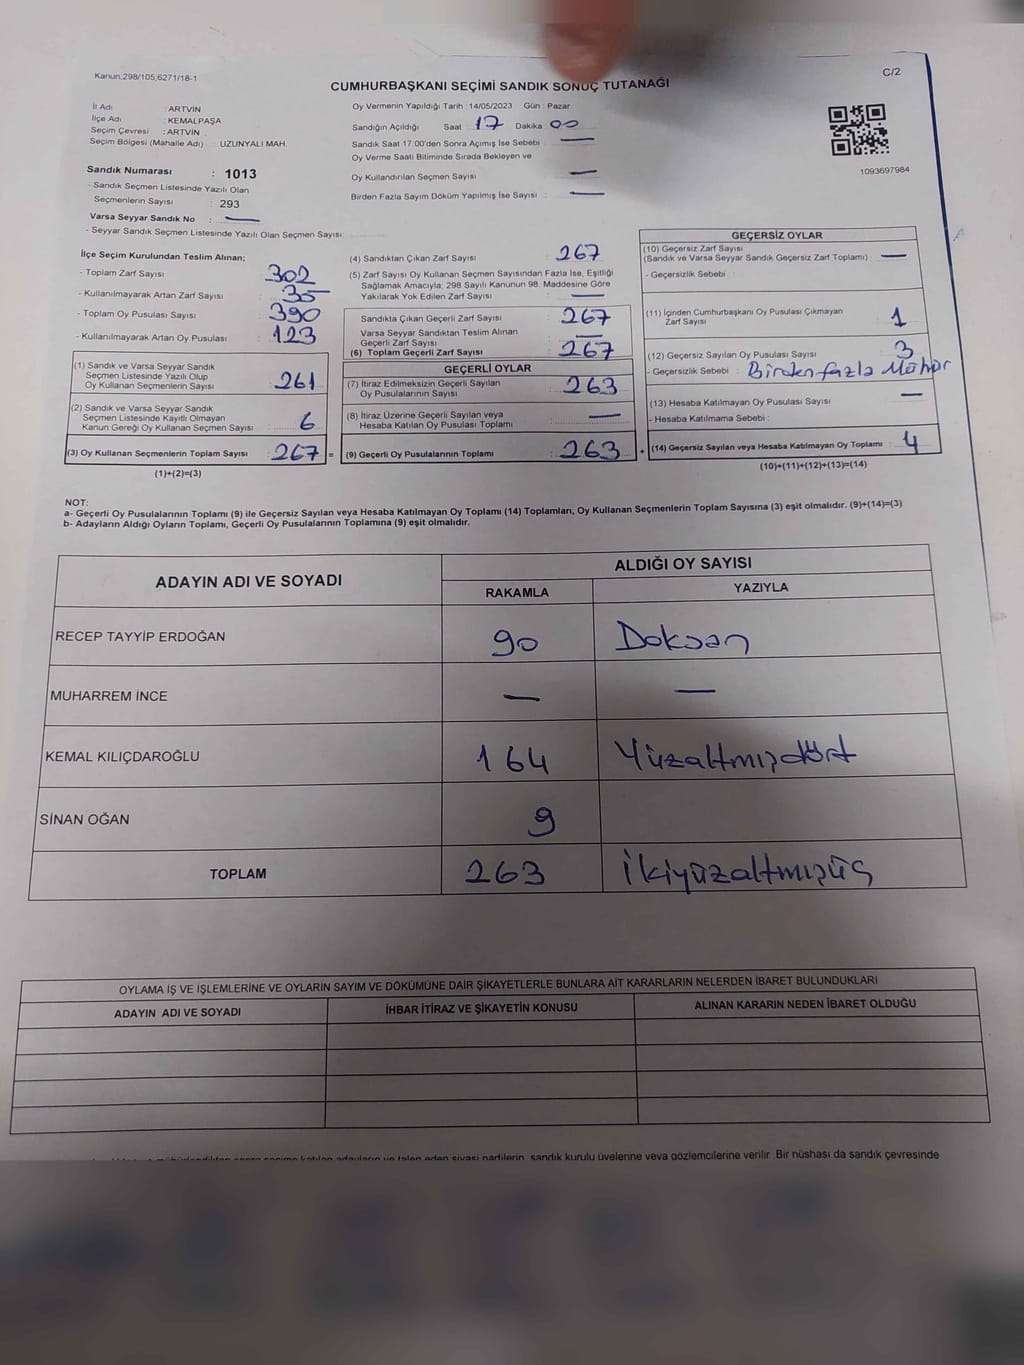 Kanun;298/105,6271/18-1
C/2
CUMHURBAŞKANI SEÇİMİ SANDIK SONUÇ TUTANAĞI
İl Adı : ARTVİN
İlçe Adı : KEMALPAŞA
Seçim Çevresi : ARTVİN
Seçim Bölgesi (Mahalle Adı) : UZUNYALI MAH.
Oy Vermenin Yapıldığı Tarih : 14/05/2023 Gün : Pazar
Sandığın Açıldığı Saat 17 Dakika 00
Sandık Saat 17:00'den Sonra Açımış İse Sebebi : —
Oy Verme Saati Bitiminde Sırada Bekleyen ve
Oy Kullandırılan Seçmen Sayısı —
Birden Fazla Sayım Döküm Yapılmış İse Sayısı : —
1093697984
Sandık Numarası : 1013
- Sandık Seçmen Listesinde Yazılı Olan
Seçmenlerin Sayısı : 293
Varsa Seyyar Sandık No : —
- Seyyar Sandık Seçmen Listesinde Yazılı Olan Seçmen Sayısı:
İlçe Seçim Kurulundan Teslim Alınan;
- Toplam Zarf Sayısı 302
- Kullanılmayarak Artan Zarf Sayısı : 35
- Toplam Oy Pusulası Sayısı : 390
- Kullanılmayarak Artan Oy Pusulası : 123
(1) Sandık ve Varsa Seyyar Sandık
Seçmen Listesinde Yazılı Olup
Oy Kullanan Seçmenlerin Sayısı : 261
(2) Sandık ve Varsa Seyyar Sandık
Seçmen Listesinde Kayıtlı Olmayan
Kanun Gereği Oy Kullanan Seçmen Sayısı : 6
(3) Oy Kullanan Seçmenlerin Toplam Sayısı : 267 =
(1)+(2)=(3)
(4) Sandıktan Çıkan Zarf Sayısı : 267
(5) Zarf Sayısı Oy Kullanan Seçmen Sayısından Fazla İse, Eşitliği
Sağlamak Amacıyla; 298 Sayılı Kanunun 98. Maddesine Göre
Yakılarak Yok Edilen Zarf Sayısı : —
Sandıkta Çıkan Geçerli Zarf Sayısı : 267
Varsa Seyyar Sandıktan Teslim Alınan
Geçerli Zarf Sayısı : —
(6) Toplam Geçerli Zarf Sayısı : 267
GEÇERLİ OYLAR
(7) İtiraz Edilmeksizin Geçerli Sayılan
Oy Pusulasının Sayısı : 263
(8) İtiraz Üzerine Geçerli Sayılan veya
Hesaba Katılan Oy Pusulası Toplamı : —
(9) Geçerli Oy Pusulalarının Toplamı : 263 +
GEÇERSİZ OYLAR
(10) Geçersiz Zarf Sayısı
(Sandık ve Varsa Seyyar Sandık Geçersiz Zarf Toplamı) : —
- Geçersizlik Sebebi :
(11) İçinden Cumhurbaşkanı Oy Pusulası Çıkmayan
Zarf Sayısı : 1
(12) Geçersiz Sayılan Oy Pusulası Sayısı : 3
- Geçersizlik Sebebi : Birden fazla Mühür
(13) Hesaba Katılmayan Oy Pusulası Sayısı : —
- Hesaba Katılmama Sebebi :
(14) Geçersiz Sayılan veya Hesaba Katılmayan Oy Toplamı : 4
(10)+(11)+(12)+(13)=(14)
NOT:
a- Geçerli Oy Pusulalarının Toplamı (9) ile Geçersiz Sayılan veya Hesaba Katılmayan Oy Toplamı (14) Toplamları, Oy Kullanan Seçmenlerin Toplam Sayısına (3) eşit olmalıdır. (9)+(14)=(3)
b- Adayların Aldığı Oyların Toplamı, Geçerli Oy Pusulalarının Toplamına (9) eşit olmalıdır.
ADAYIN ADI VE SOYADI ALDIĞI OY SAYISI
RAKAMLA YAZIYLA
RECEP TAYYİP ERDOĞAN 90 Doksan
MUHARREM İNCE — —
KEMAL KILIÇDAROĞLU 164 Yüzaltmışdört
SİNAN OĞAN 9
TOPLAM 263 İkiyüzaltmışüç
OYLAMA İŞ VE İŞLEMLERİNE VE OYLARIN SAYIM VE DÖKÜMÜNE DAİR ŞİKAYETLERLE BUNLARA AİT KARARLARIN NELERDEN İBARET BULUNDUKLARI
ADAYIN ADI VE SOYADI İHBAR İTİRAZ VE ŞİKAYETİN KONUSU ALINAN KARARIN NEDEN İBARET OLDUĞU
sonra seçime katılan adayların ve talep eden siyasi partilerin, sandık kurulu üyelerine veya gözlemcilerine verilir. Bir nüshası da sandık çevresinde